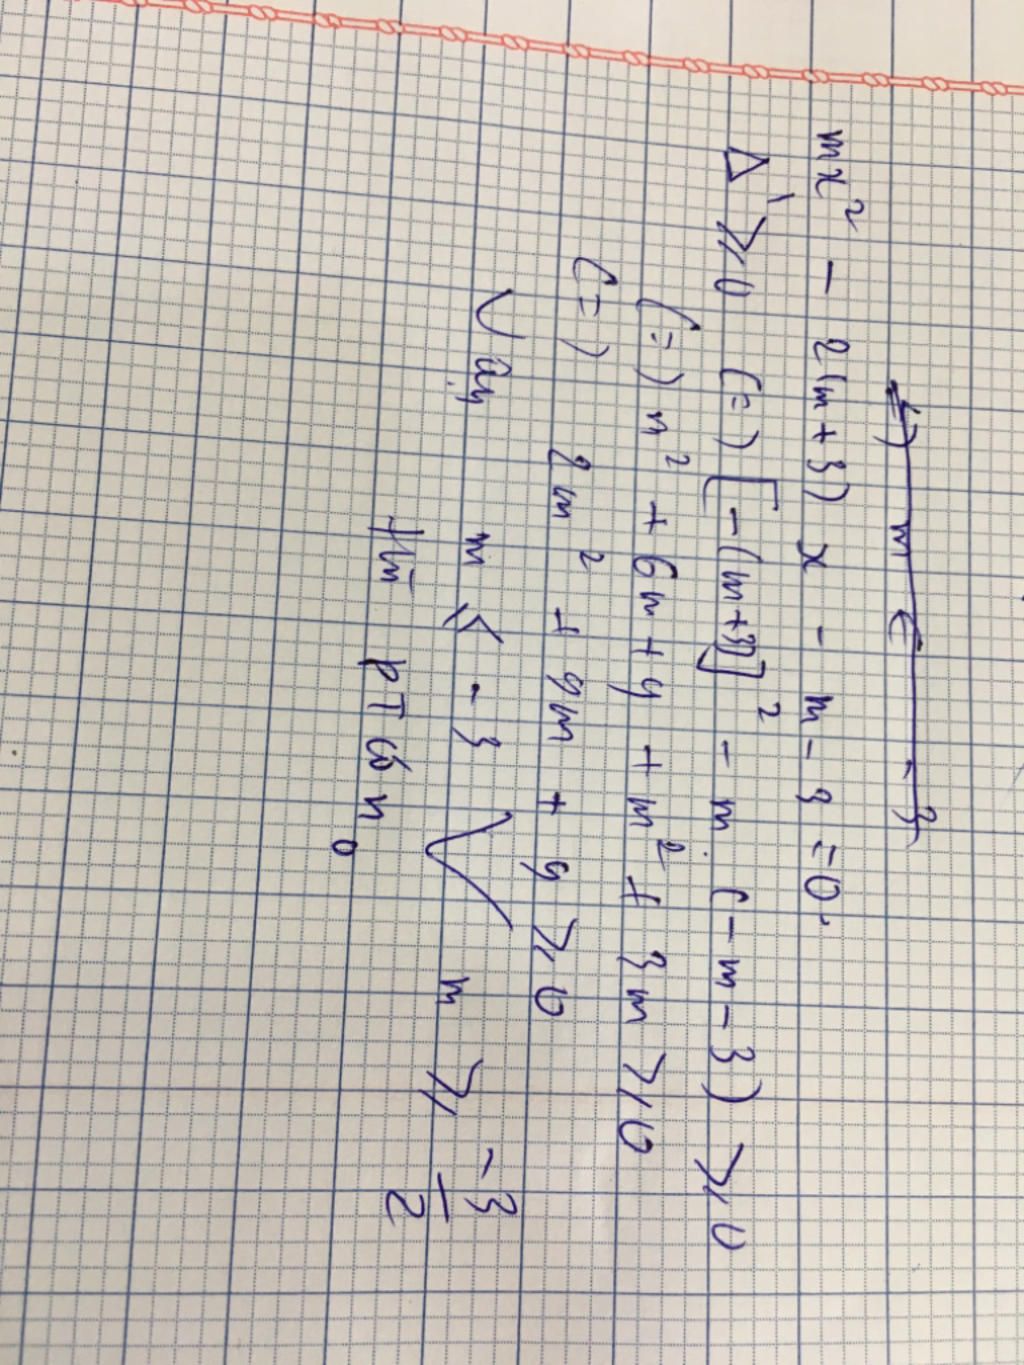 ⇔) m ∈ -3
mx² - 2(m+3) x - m - 3 = 0.
Δ' ⩾ 0 (=) [-(m+3)]² - m. (-m-3) ⩾ 0
(=) m² + 6m + 9 + m² + 3m ⩾ 0
(=) 2m² + 9m + 9 ⩾ 0
Vậy m ⩽ -3 V m ⩾ -3/2
thì pT có n°